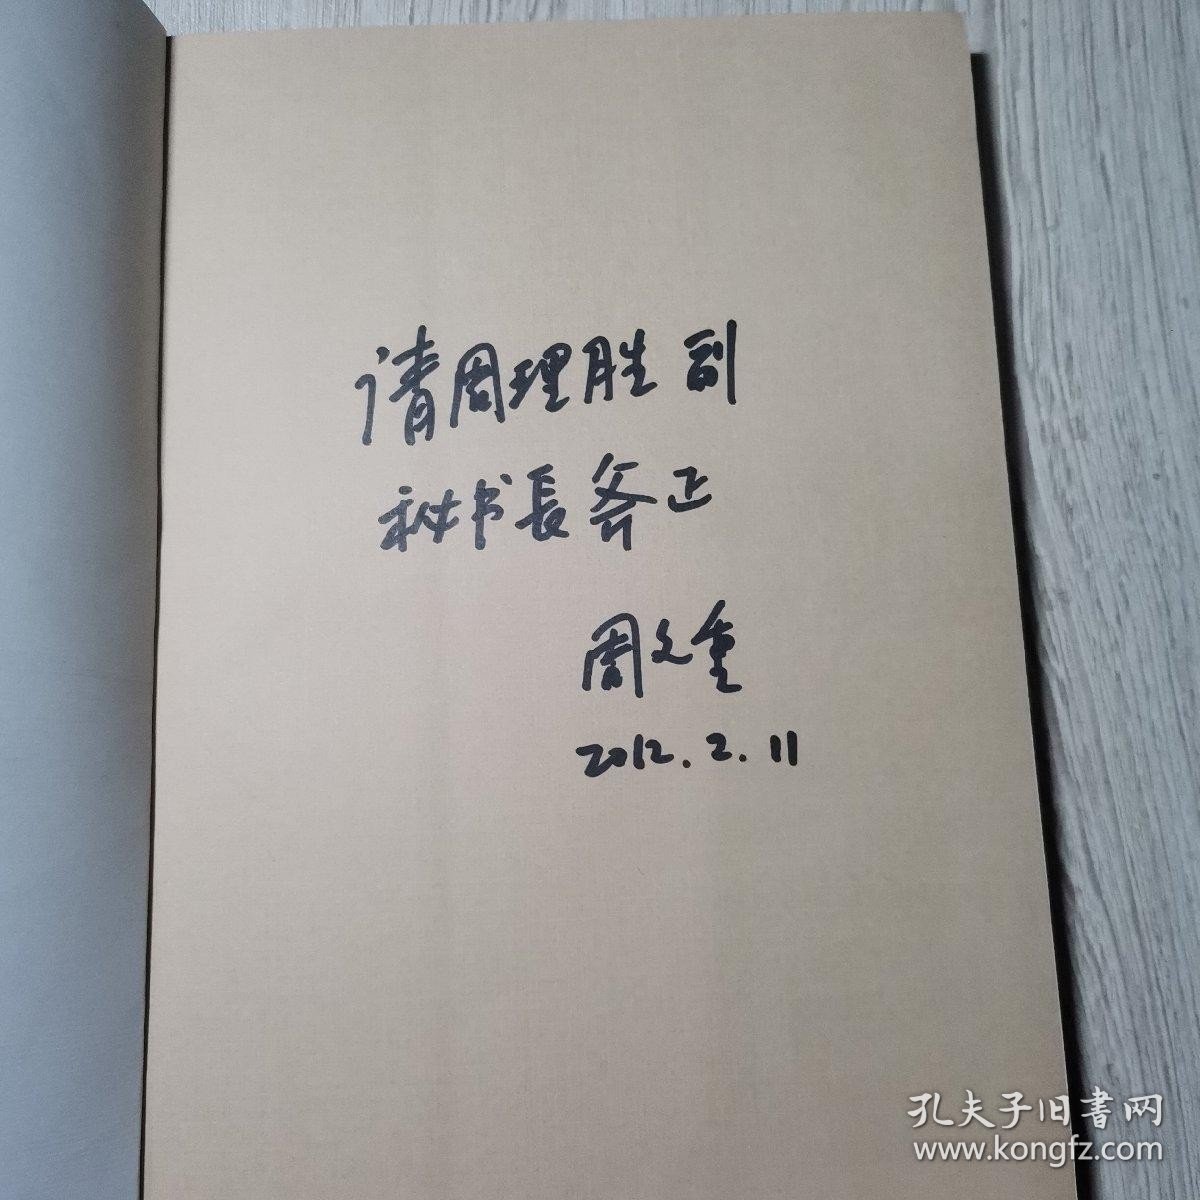 请周理胜副
秘书長斧正
周文重
2012.2.11
孔夫子旧書网
www.kongfz.com